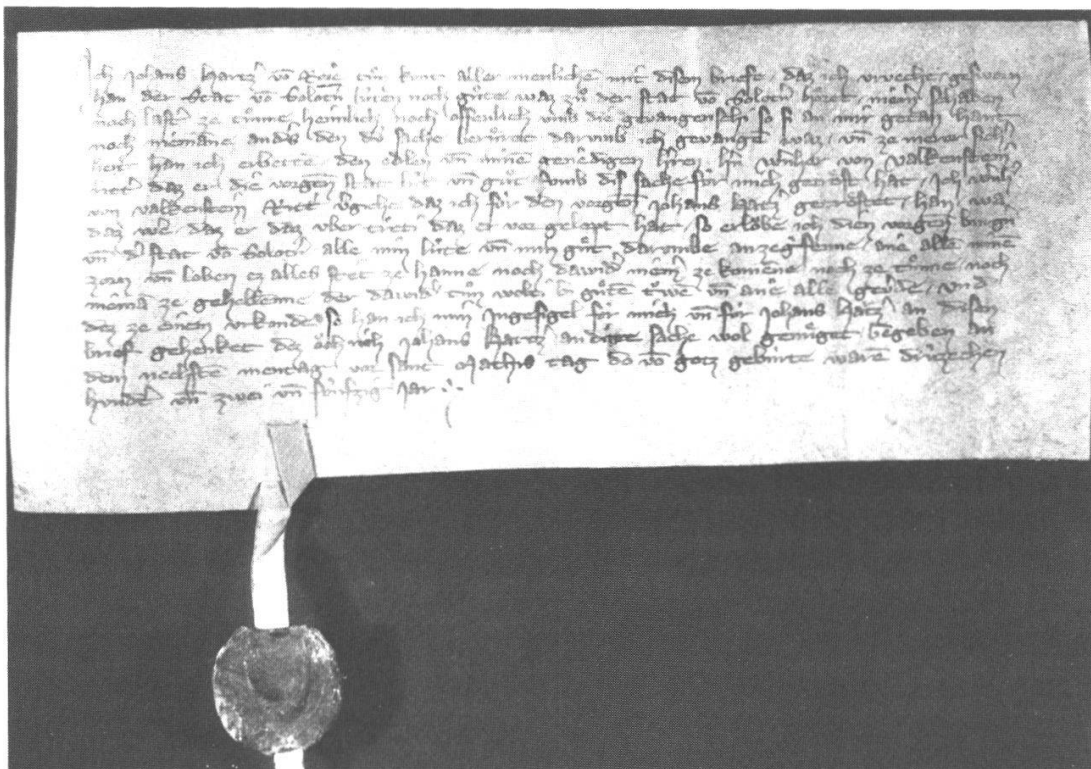 Ich Johans Hartz̕ vō Rore tůn kunt aller menlichē mit disem briefe, daz ich vrvecht gesworn
han der Stat vō Solotn̄ lúten noch gůte waz zů der stat vō Solotn̄ hôret niem̄ schaden
noch last̕ ze tůnne heimlich noch offenlich vmb die gevangenschi so si an mir getan hant
noch niemāne anders den dú sache berůret darumb ich gevangē waz, vn̄ ze merer sich̕
heit han ich erbettē den edlen vn̄ minē genedigen h̕ren h̕n Wilh̕er von Valkenstein
ritt̕ daz er die vorgen̄ stat lút vn̄ gůt vmb dis sache fúr mich getrôst hat, Ich Wilh̕
von Valkenstein Ritt̕ v̕giche daz ich fúr den vorgen̄ Johans Hatz̕ getrôstet han, wā
daz wē daz er daz vber tretti daz er vor gelopt hat, so erlôbe ich dien vorgen̄ burgn̄
vn̄ d̕ stat vō Solotn̄ alle min lúte vn̄ min gůt darumbe an zegriffenne, ane alle minē
zorn vn̄ loben ez alles stet ze hanne noch dawid̕ niem̄ ze komēne noch ze tůnne, noch
niemā ze gehellenne der dawid̕ tůn wolte bi gůtē trúwē vn̄ ane alle geverde, vnd
dez ze einem vrkunde so han ich min Ingesigel fúr mich vn̄ fúr Johans Hatz̕ an disen
brief gehenket dez ôch ich Johans Hartz̕ an dirre sache wol genůget, Begeben an
dem nechstē mentag vor sant Mathis tag do vō gotz geburte warē drúzechen
hvndt̕ vn̄ zwei vn̄ fúnfzig Jar